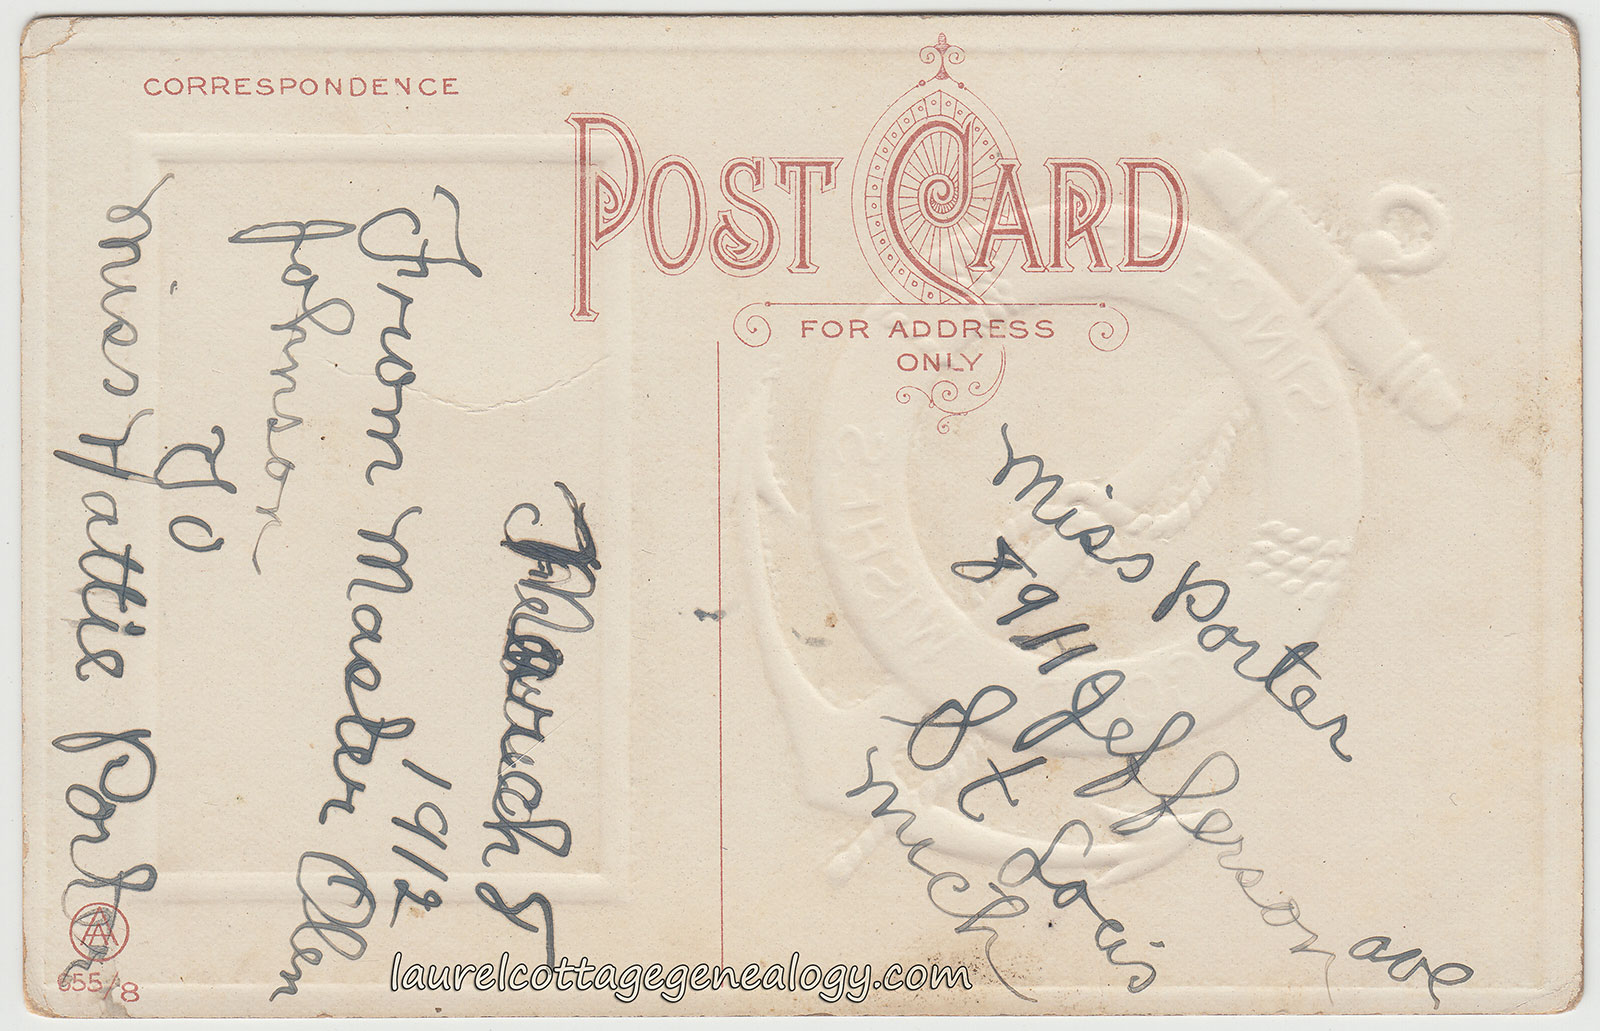 CORRESPONDENCE
POST CARD
FOR ADDRESS
ONLY
March 8
1912
From Master Olen
Johnson
To
Miss Hattie Porter
Miss Porter
8911 Jefferson ave
St Louis
Mich
AA
655/8
laurelcottagegenealogy.com